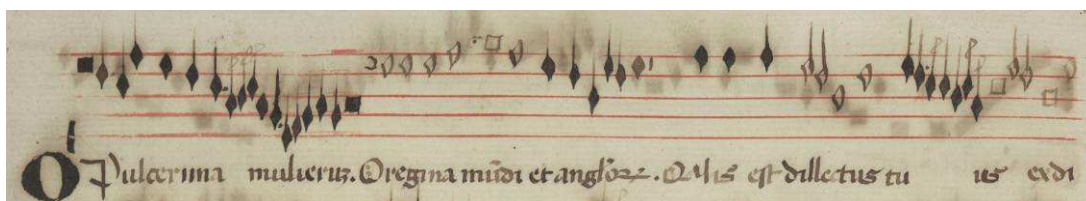 O Pulcerima mulieruz. O regina mūdi et anglōꝝ. Qalis est dillectus tu us ex di